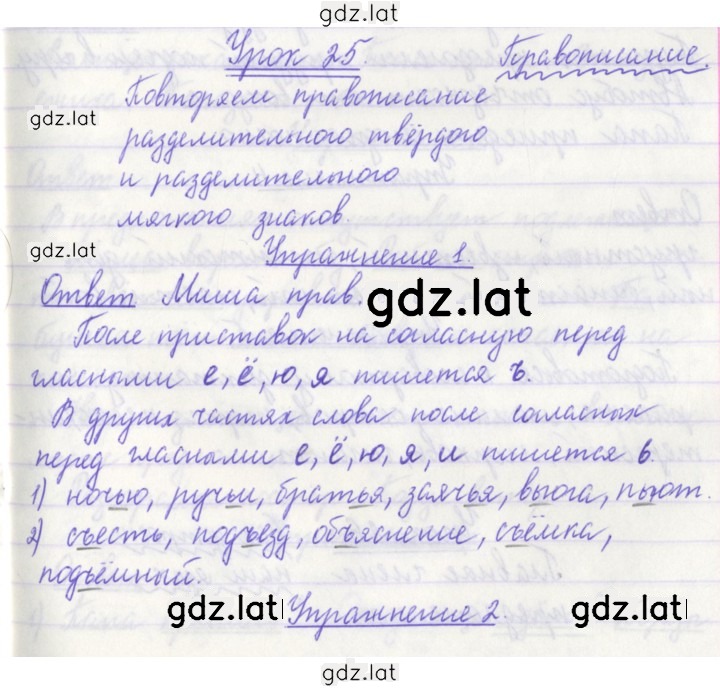 gdz.lat
Урок 25. Правописание.
Повторяем правописание
gdz.lat
разделительного твёрдого
и разделительного
мягкого знаков.
gdz.lat
Упражнение 1
Ответ Миша прав.
gdz.lat
После приставок на согласную перед
гласными е, ё, ю, я пишется ъ.
В других частях слова после согласных
перед гласными е, ё, ю, я, и пишется ь.
1) ночью, ручьи, братья, заячья, вьюга, пьют.
2) съесть, подъезд, объяснение, съёмка,
подъёмный.
gdz.lat Упражнение 2. gdz.lat
gdz.lat